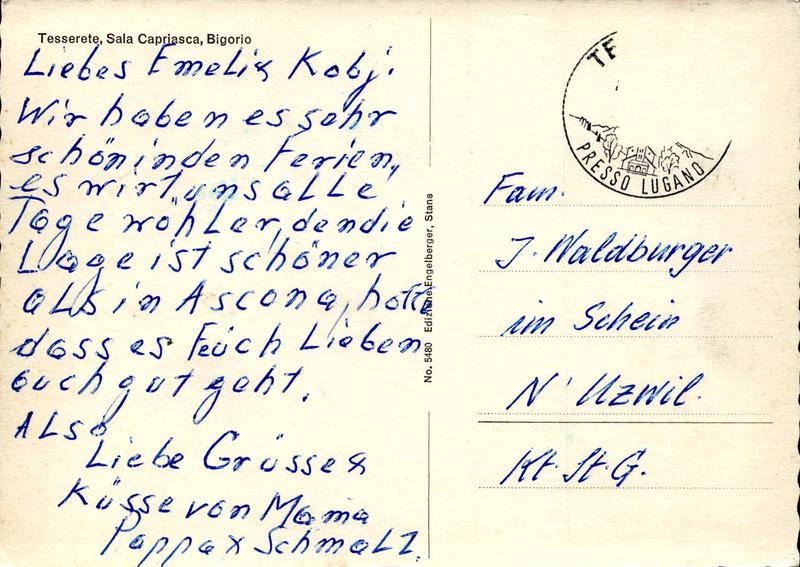 Tesserete, Sala Capriasca, Bigorio
Liebes Emeli & Kobj.
Wir haben es sehr
schön in den Ferien,
es wirt uns alle
Tage wöhler, den die
Lage ist schöner
als in Ascona, hoffe
dass es Feüch Lieben
auch gut geht.
Also
Liebe Grüsse &
Küsse von Mama
Pappa & Schmalz.
No. 5480 Edizione Engelberger, Stans
TE
PRESSO LUGANO
Fam.
J. Waldburger
im Schein
N' Uzwil.
Kt. St. G.